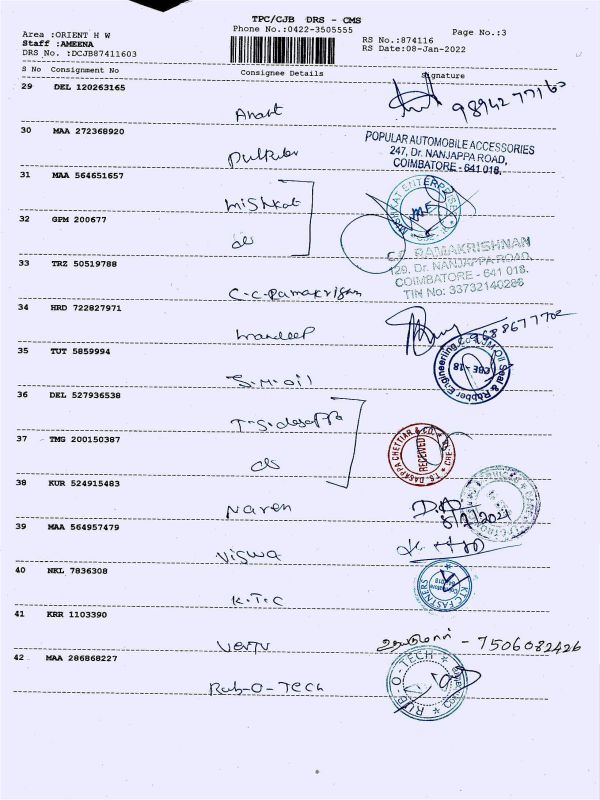 TPC/CJB DRS - CMS
Area :ORIENT H W
Phone No.:0422-3505555
RS No.:874116
Page No.:3
Staff :AMEENA
RS Date:08-Jan-2022
DRS No. :DCJB87411603
S No Consignment No
Consignee Details
Signature
29 DEL 120263165
Anant
98942 77160
30 MAA 272368920
POPULAR AUTOMOBILE ACCESSORIES
247, Dr. NANJAPPA ROAD,
COIMBATORE - 641 018.
31 MAA 564651657
Mishkat
32 GPM 200677
do
33 TRZ 50519788
C.C. RAMAKRISHNAN
129, Dr. NANJAPPA ROAD,
COIMBATORE - 641 018.
TIN No: 33732140286
C-C-Ramakrishnan
34 HRD 722827971
Mandeep
9688677702
35 TUT 5859994
S.M.oil
Oil Seal & Rubber Engineering Co.
CBE -18
36 DEL 527936538
T-S-dasappa
37 TMG 200150387
do
T.S. DASAPPA CHETTIAR & CO
RECEIVED
38 KUR 524915483
Naren
39 MAA 564957479
Viswa
40 NKL 7836308
K.T.C
K.T.C FASTNERS
41 KRR 1103390
Venu
- 7506082426
42 MAA 286868227
Rub-O-Tech
RUB-O-TECH